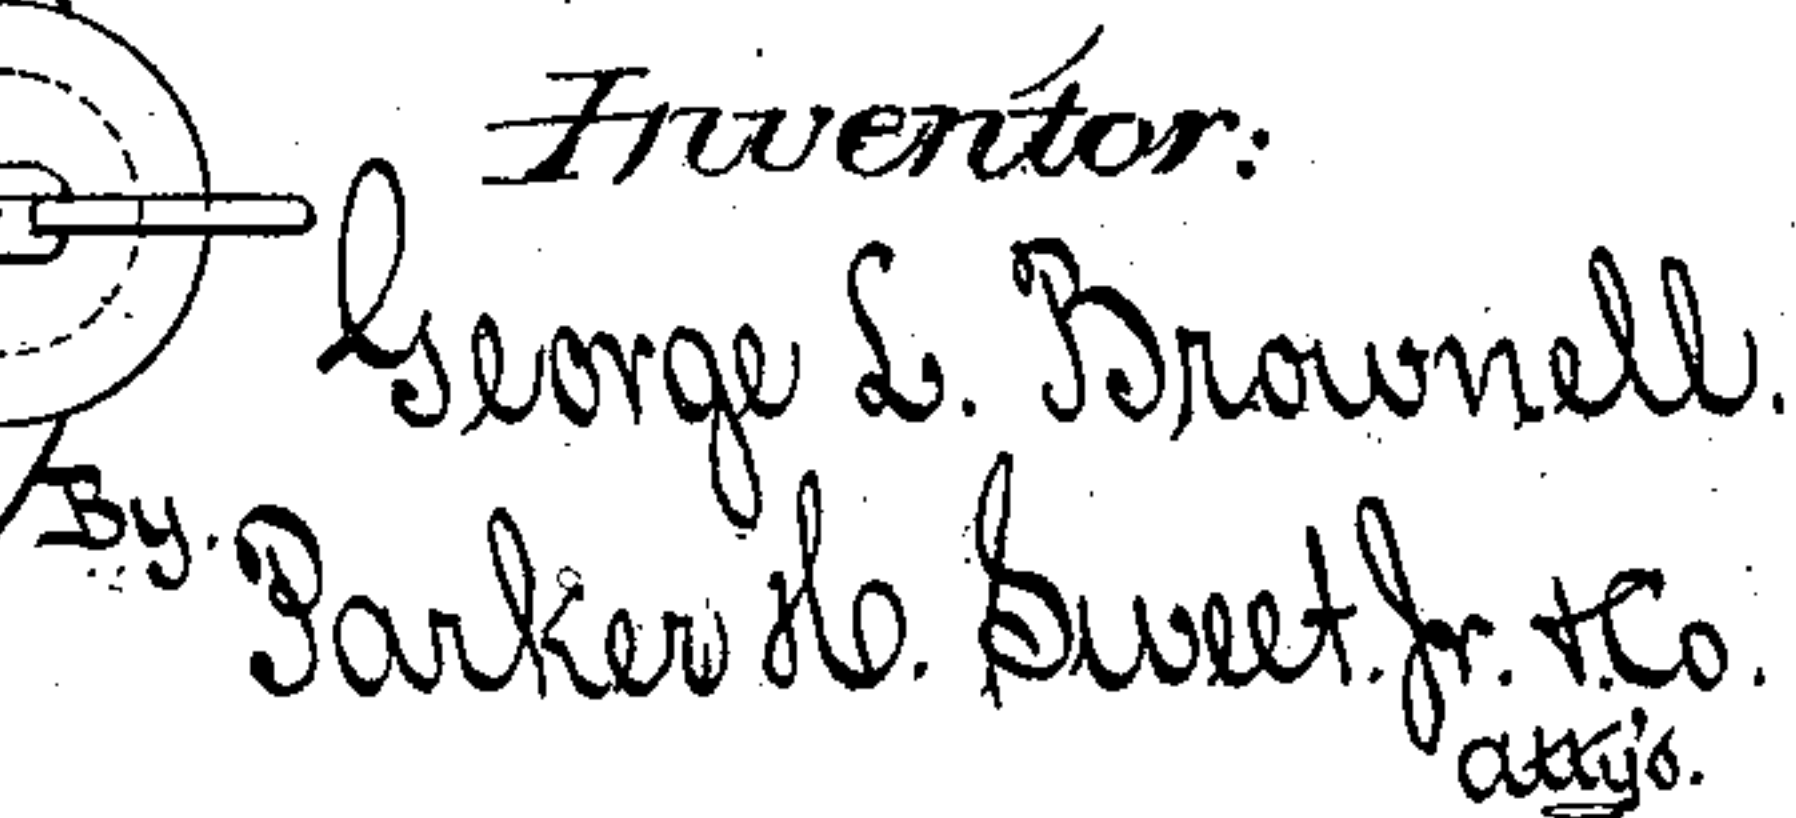 Inventor:
George L. Brownell.
By. Parker H. Sweet. Jr. & Co.
Atty's.